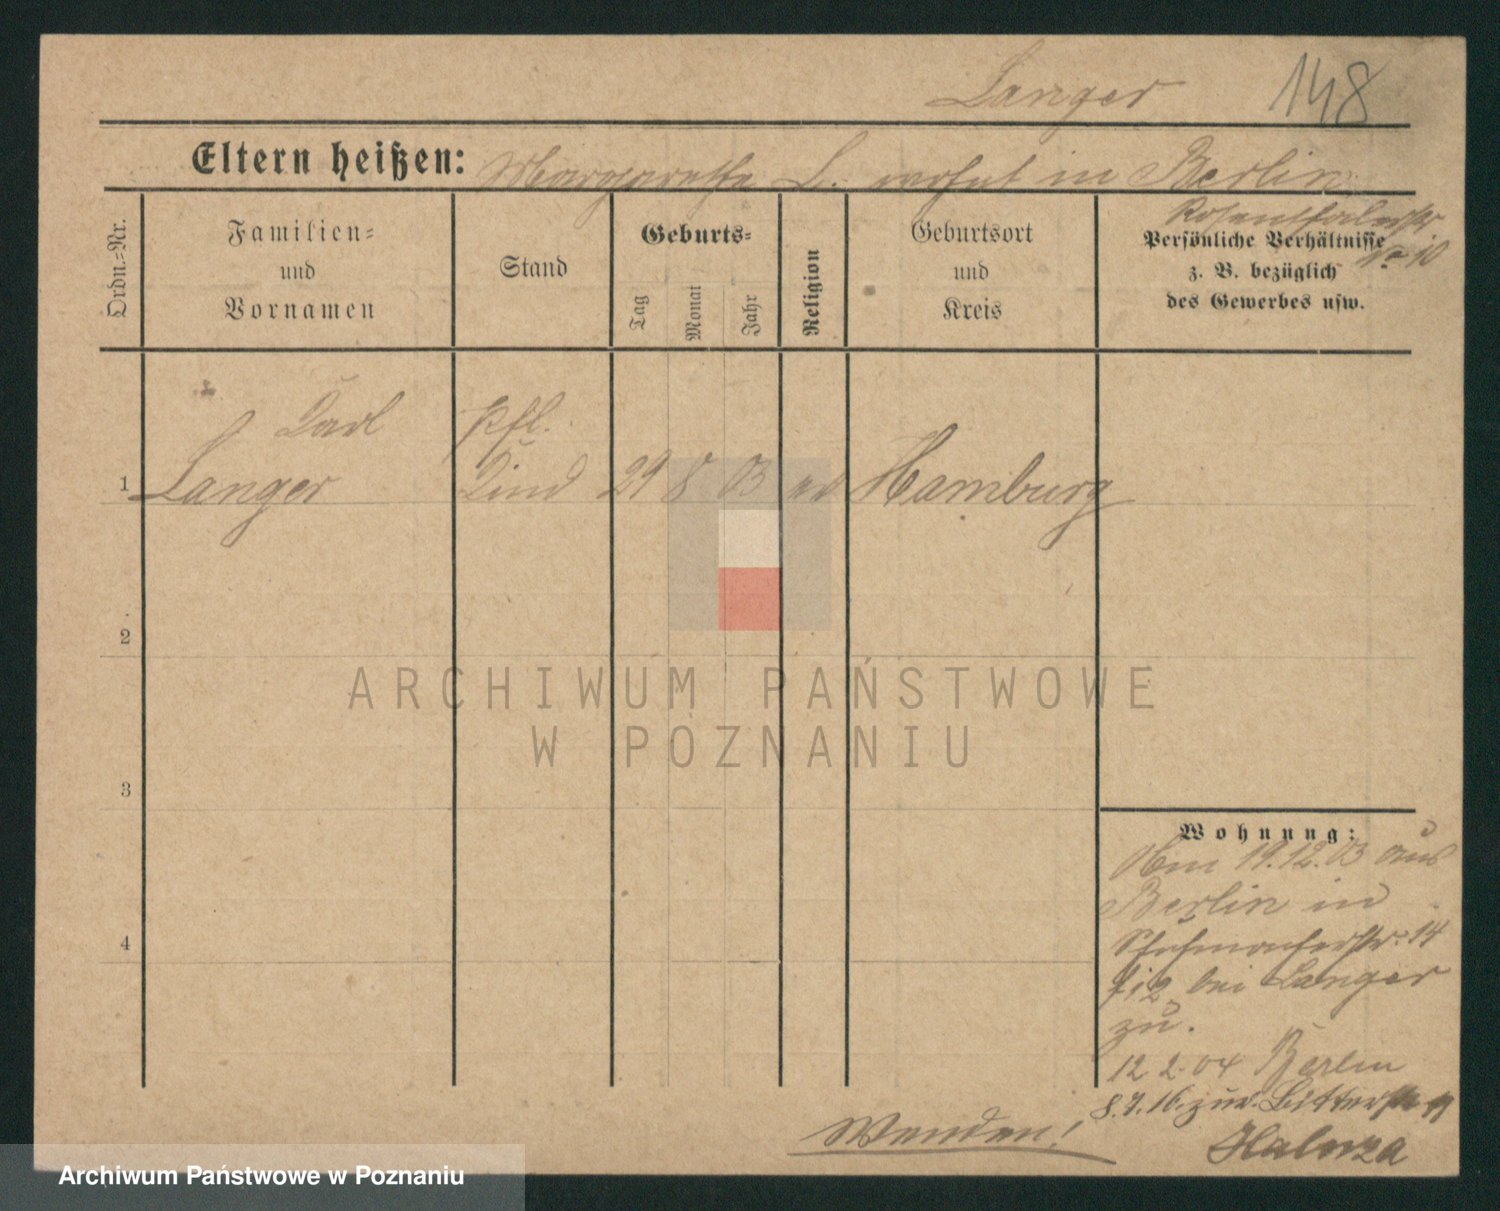 Langer 148
Eltern heißen: Margarethe L. wohnt in Berlin
Rosenthalerstr
No 10
Ordn.-Nr.
Familien-
und
Vornamen
Stand
Geburts-
Tag
Monat
Jahr
Religion
Geburtsort
und
Kreis
Persönliche Verhältnisse
z. B. bezüglich
des Gewerbes usw.
Carl Pfl.
1 Langer Kind 29 8 03 ev Hamburg
2
3
4
Wohnung:
Am 19.12.03 aus
Berlin in
14
bei Langer
zu.
12 2. 04 Berlin
8.7.16. zur. Bitterstr
Wenden!
ARCHIWUM PAŃSTWOWE
W POZNANIU
Archiwum Państwowe w Poznaniu